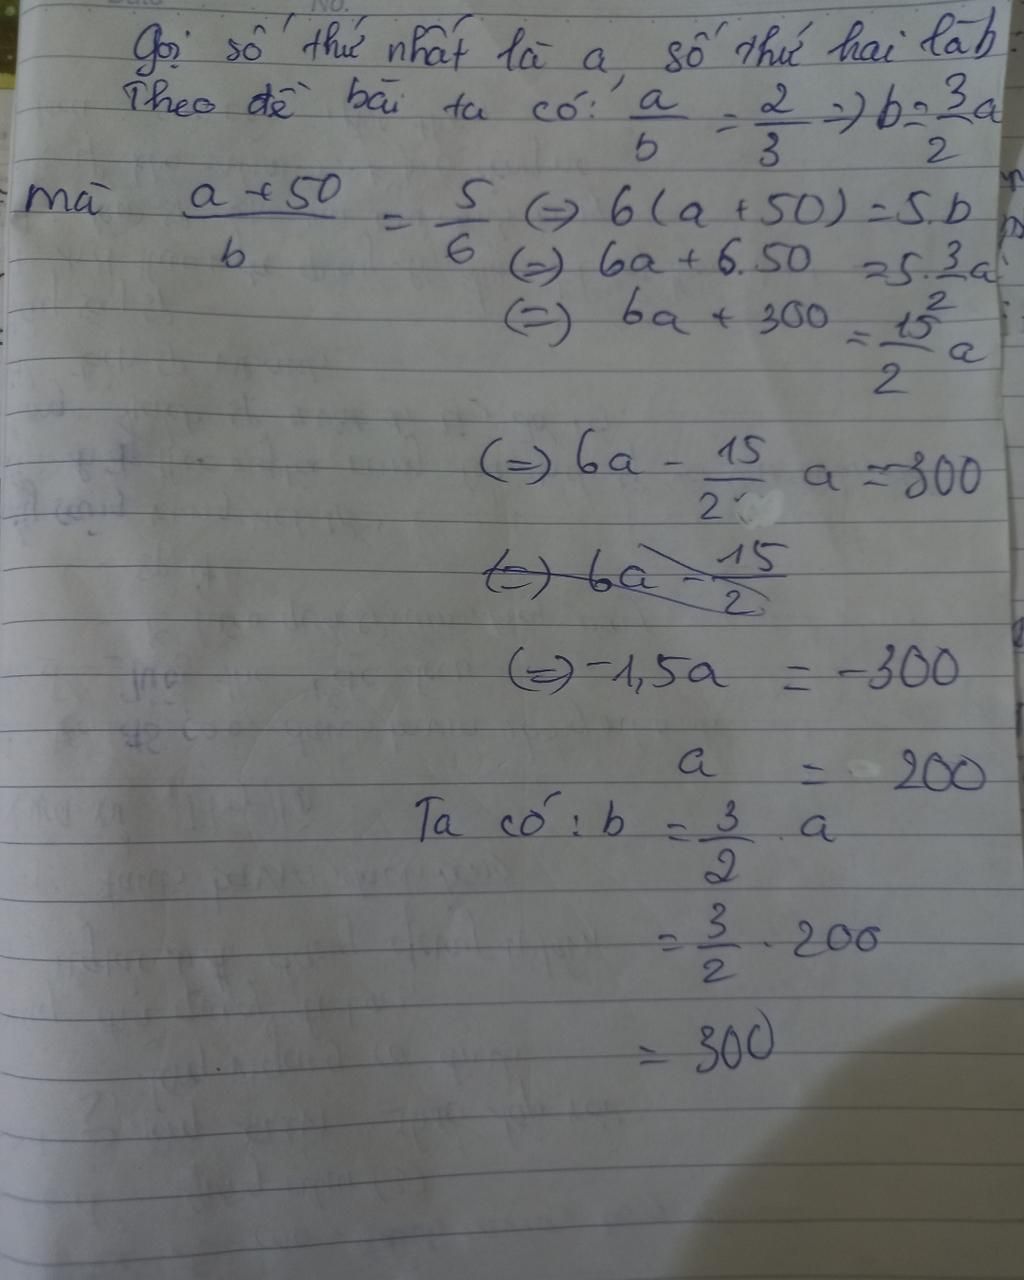 Gọi số thứ nhất là a, số thứ hai là b
Theo đề bài ta có: a/b = 2/3 => b = 3/2 a
mà (a + 50)/b = 5/6 (=) 6(a + 50) = 5.b
(=) 6a + 6.50 = 5.3/2 a
(=) 6a + 300 = 15/2 a
(=) 6a - 15/2 a = -300
(=) 6a - 15/2
(=) -1,5a = -300
a = 200
Ta có: b = 3/2 . a
= 3/2 . 200
= 300